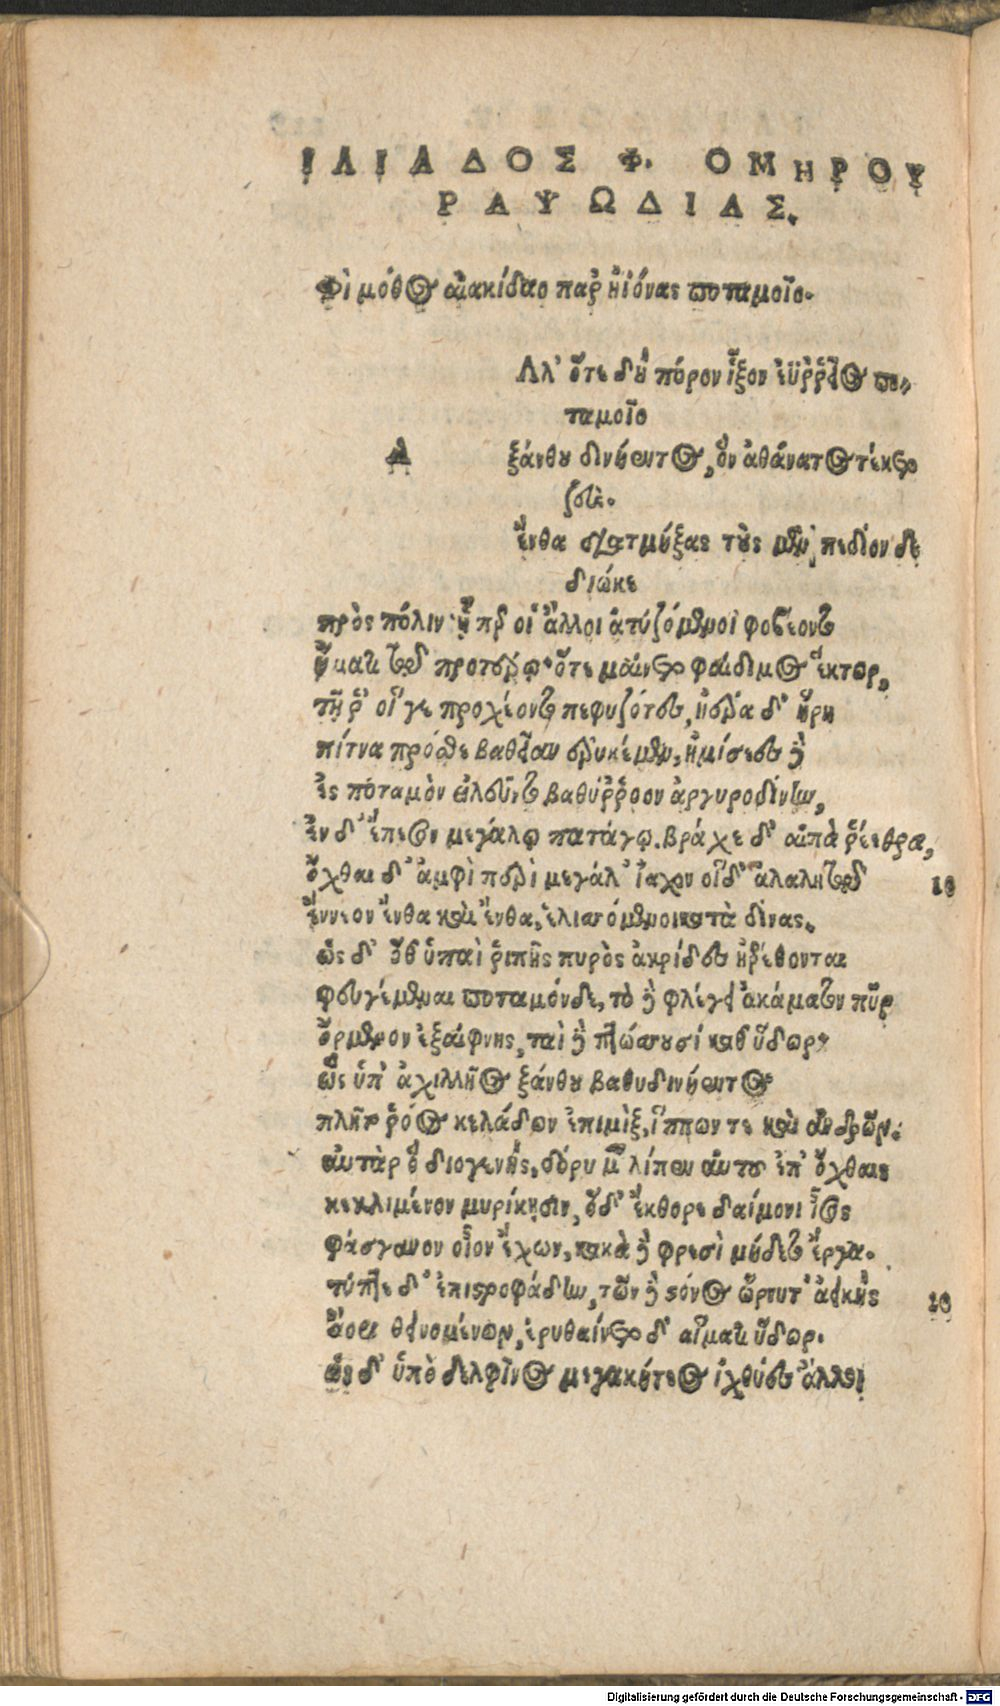 ΙΛΙΑΔΟΣ Φ. ΟΜΗΡΟΥ
ΡΑΨΩΔΙΑΣ.
Φὶ μόθος αἰακίδαο παρ' ἠϊόνας ποταμοῖο.
Αλ' ὅτε δὴ πόρον ἷξον ἐϋῤῥεῖος πο-
ταμοῖο
Λ
ξάνθου δινήεντος, ὃν ἀθάνατος τέκετο
ζεύς.
ἔνθα διατμήξας τοὺς μὲν, πεδίον δὲ
δίωκε
πρὸς πόλιν ᾗ περ οἱ ἄλλοι ἀτυζόμενοι φοβέοντο
ἤματι τῷ προτέρῳ ὅτε μαίνετο φαίδιμος ἕκτωρ,
τῇ ῥ' οἵ γε προχέοντο πεφυζότες, ἠέρα δ' ἥρη
πίτνα πρόσθε βαθεῖαν ἐρυκέμεν, ἡμίσεες δὲ
ἐς ποταμὸν εἰλεῦντο βαθύῤῥοον ἀργυροδίνην,
ἐν δ' ἔπεσον μεγάλῳ πατάγῳ. βράχε δ' αἰπὰ ῥέεθρα,
ὄχθαι δ' ἀμφὶ περὶ μεγάλ' ἴαχον οἱ δ' ἀλαλητῷ
10
ἔννεον ἔνθα καὶ ἔνθα, ἑλισσόμενοι κατὰ δίνας.
ὡς δ' ὅθ' ὑπαὶ ῥιπῆς πυρὸς ἀκρίδες ἠερέθονται
φευγέμεναι ποταμόνδε, τὸ δὲ φλέγει ἀκάματον πῦρ
ὄρμενον ἐξαίφνης, ταὶ δὲ πτώσσουσι καθ' ὕδωρ,
ὣς ὑπ' ἀχιλλῆος ξάνθου βαθυδινήεντος
πλῆτο ῥόος κελάδων ἐπιμὶξ, ἵππων τε καὶ ἀνδρῶν.
αὐτὰρ ὁ διογενὴς, δόρυ μὲν λίπεν αὐτοῦ ἐπ' ὄχθαις
κεκλιμένον μυρίκησιν, ὁ δ' ἔκθορε δαίμονι ἶσος
φάσγανον οἶον ἔχων, κακὰ δὲ φρεσὶ μήδετο ἔργα.
τύπτε δ' ἐπιστροφάδην, τῶν δὲ στόνος ὤρνυτ' ἀεικὴς
20
ἄορι θεινομένων, ἐρυθαίνετο δ' αἵματι ὕδωρ.
ὡς δ' ὑπὸ δελφῖνος μεγακήτεος ἰχθύες ἄλλοι
Digitalisierung gefördert durch die Deutsche Forschungsgemeinschaft - DFG